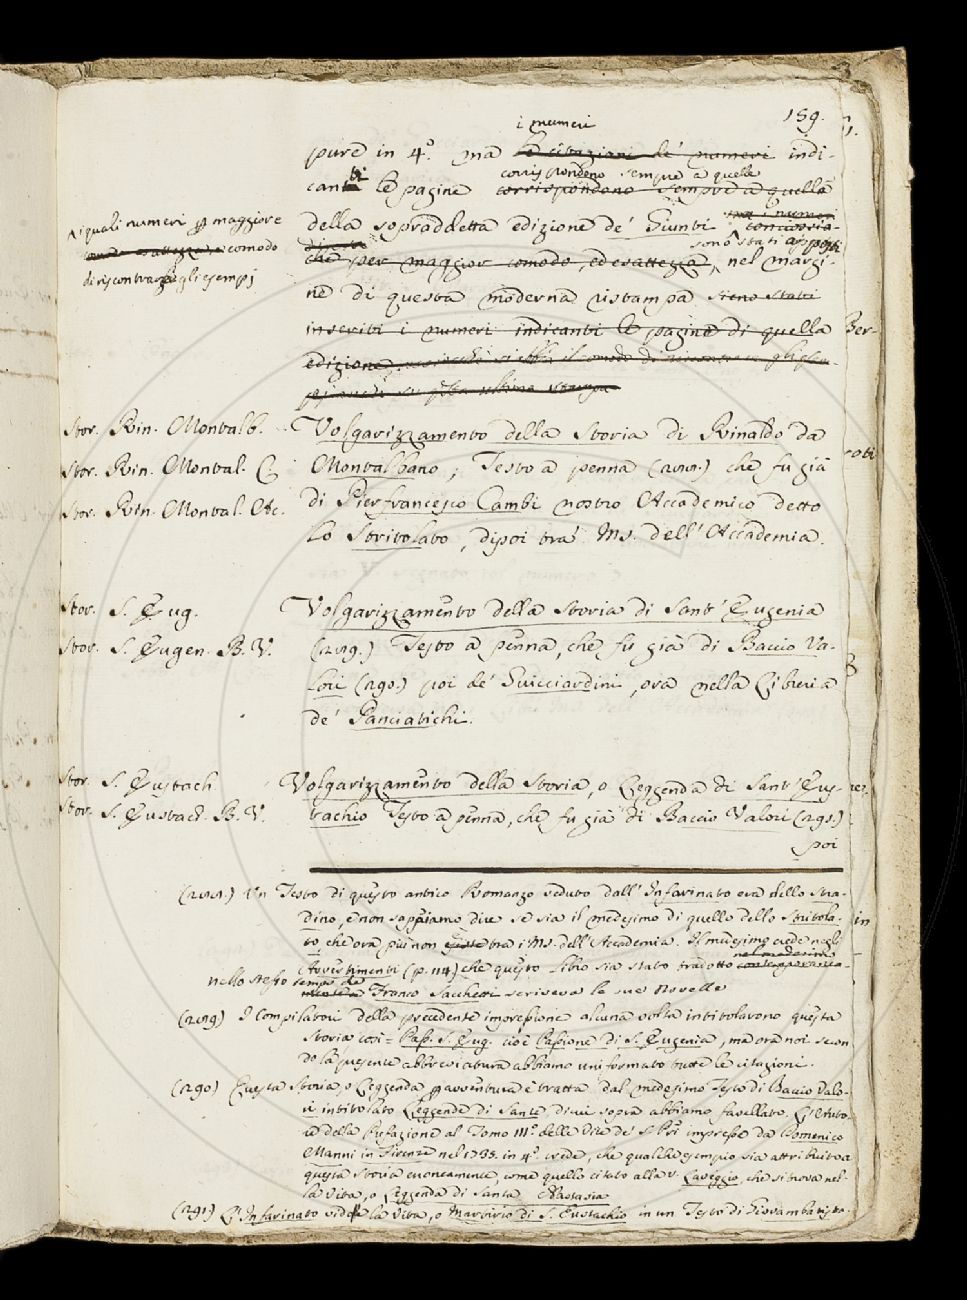 159.
i numeri
pure in 4.º ma le citazioni de' numeri indi-
corrispondono sempre a quelle
canti le pagine corrispondono sempre a quella
della sopraddetta edizione de' Giunti
sono stati apposti
che per maggior comodo, ed esattezza, nel margi-
ne di questa moderna ristampa sieno stati
inseriti i numeri indicanti le pagine di quella
edizione
ultima stampa
Ai quali numeri per maggiore
comodo
di riscontrare gli esempj
Stor. Rin. Montalb.
Stor. Rin. Montal. C.
Stor. Rin. Montal. Ac.
Volgarizzamento della Storia di Rinaldo da
Montalbano; Testo a penna (288.) che fu già
di Pierfrancesco Cambi nostro Accademico detto
Lo Stritolato, dipoi tra' MS. dell'Accademia.
Stor. S. Eug.
Stor. S. Eugen. B. V.
Volgarizzamento della Storia di Sant'Eugenia
(289.) Testo a penna, che fu già di Baccio Va-
lori (290.) poi de' Guicciardini, ora nella Libreria
de' Panciatichi.
Stor. S. Eustach.
Stor. S. Eustach. B. V.
Volgarizzamento della Storia, o Leggenda di Sant'Eus-
tachio Testo a penna, che fu già di Baccio Valori (291.)
poi
(288.) Un Testo di questo antico Romanzo veduto dall'Infarinato era dello Stra-
dino, e non sappiamo dire se sia il medesimo di quello dello Stritola-
to, che ora più non tra i MS. dell'Accademia. Il medesimo crede negli
nel medesimo
Avvertimenti (p. 114) che questo libro sia stato tradotto contemporanea-
nello stesso tempo che
mente a Franco Sacchetti scriveva le sue Novelle
(289) I Compilatori della precedente impressione alcuna volta intitolarono questa
Storia così = Pass. S. Eug. cioè Passione di S. Eugenia, ma ora noi secon-
do la presente abbreviatura abbiamo uniformato tutte le citazioni.
(290) Questa Storia, o Leggenda per avventura è tratta dal medesimo Testo di Baccio Valo-
ri intitolato Leggende di Sante, di cui sopra abbiamo favellato. L'Auto-
re della Prefazione al Tomo III.º delle Vite de' S. Pri impresse da Domenico
Manni in Firenze nel 1735. in 4.º crede, che qualche esempio sia attribuito a
questa Storia erroneamente, come quello citato alla V. Laveggio, che si trova nel-
la Vita, o Leggenda di Santa Anastasia
(291) L'Infarinato vide la Vita, o Martirio di S. Eustachio in un Testo di Giovambatista